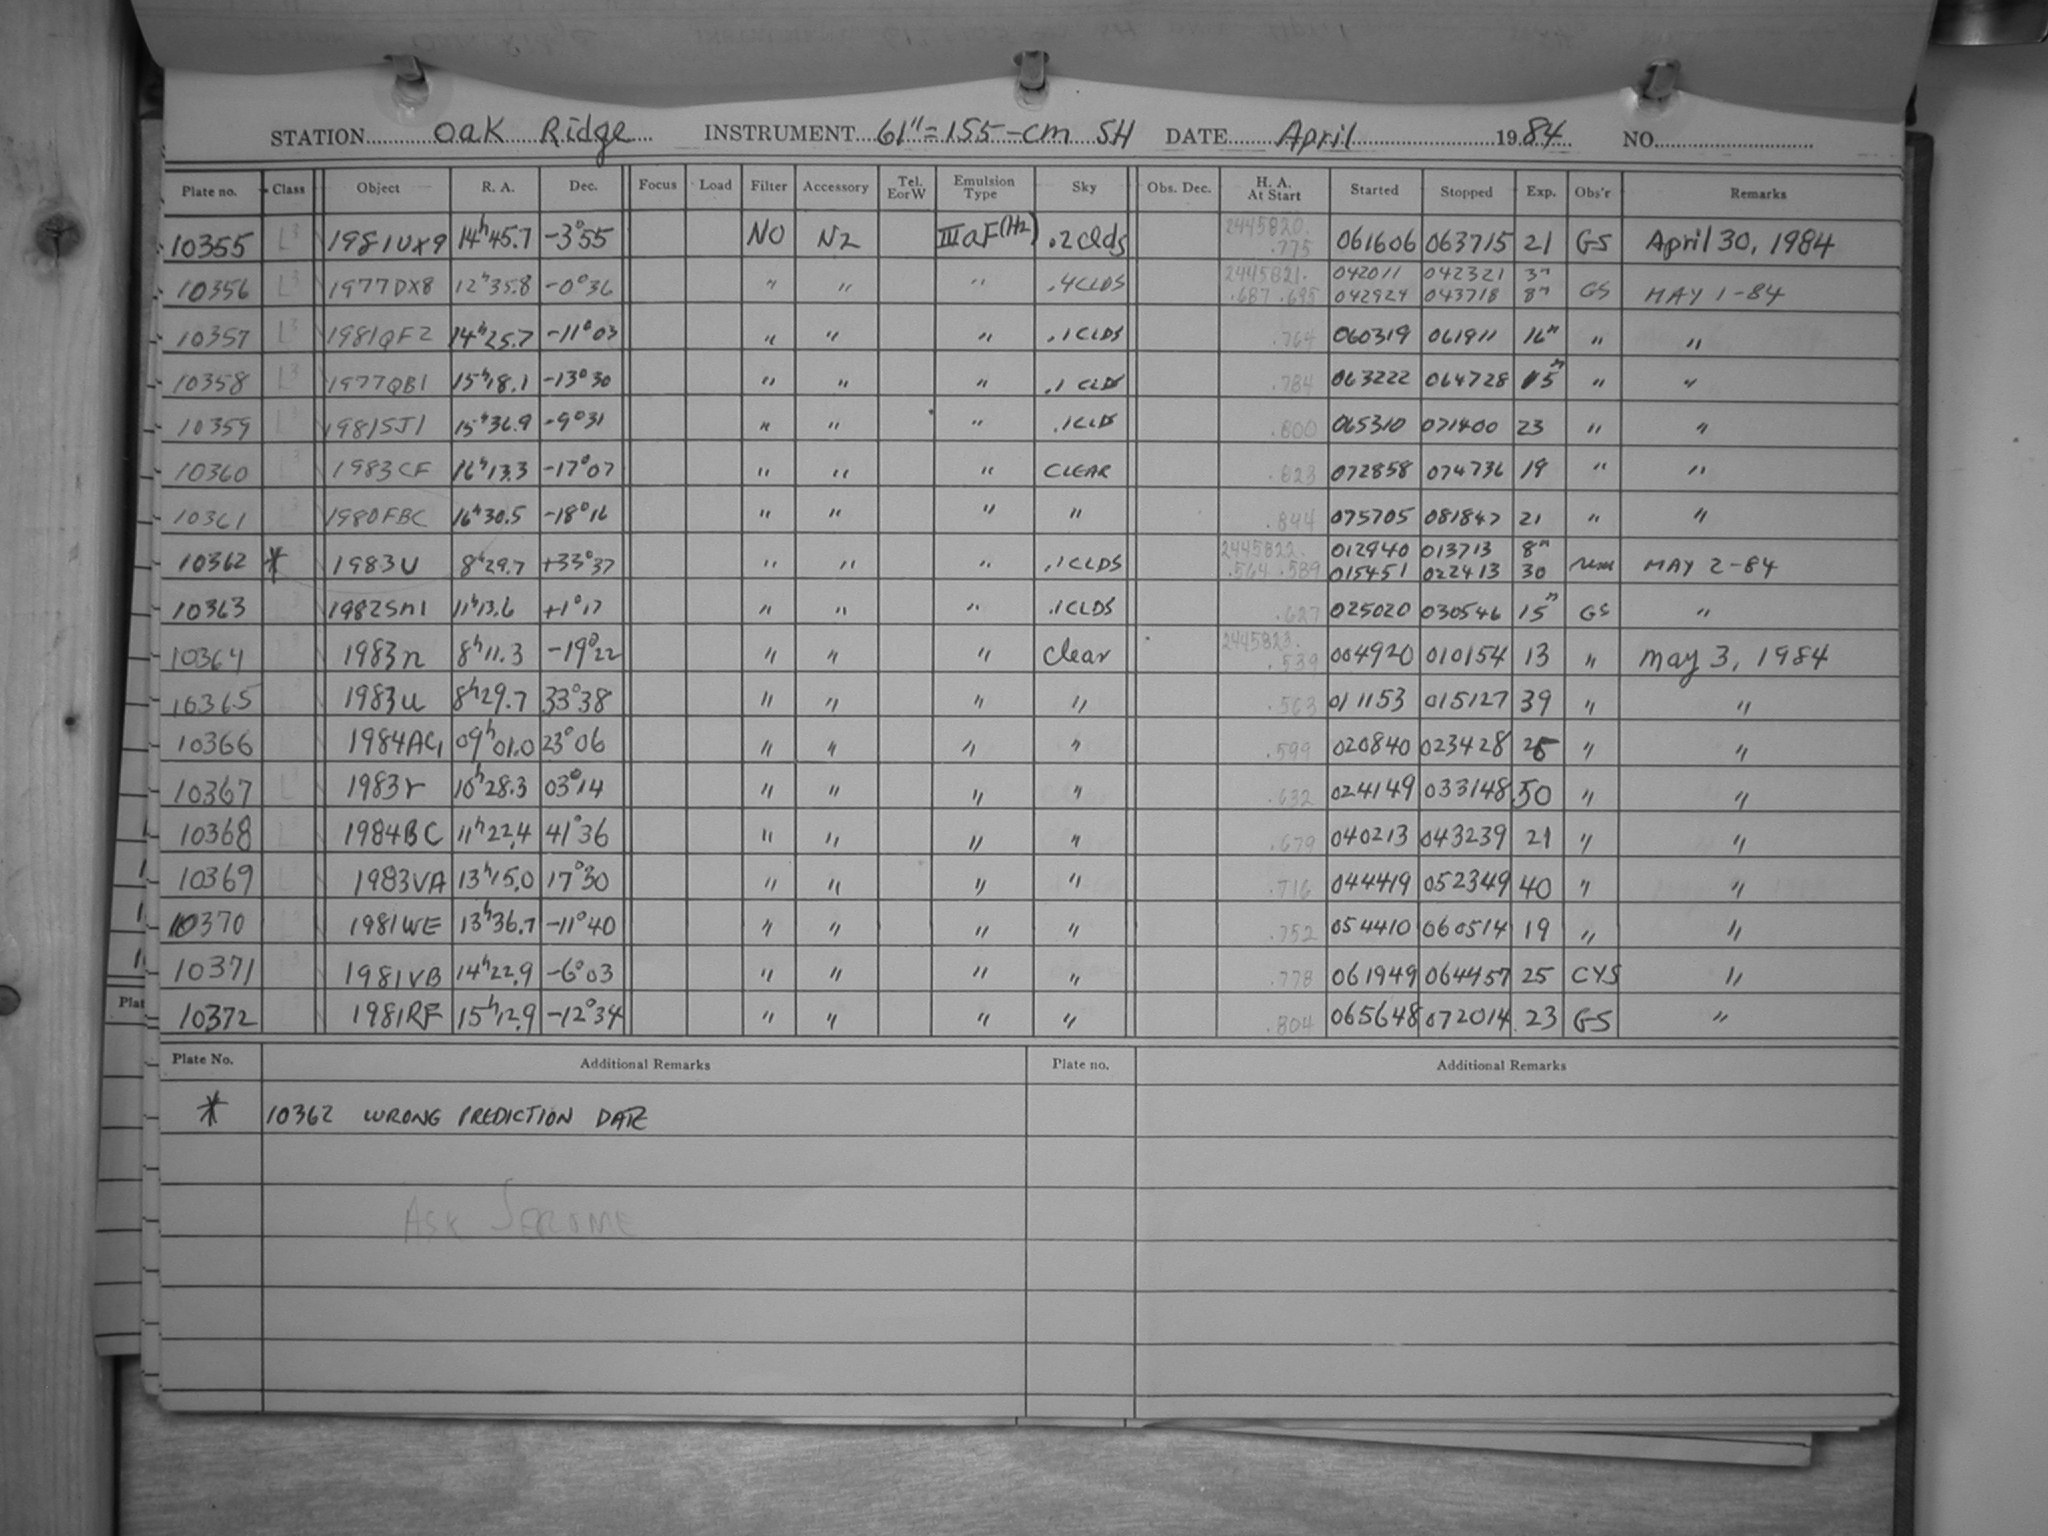 STATION Oak Ridge INSTRUMENT 61"=155-cm SH DATE April 1984 NO.
Plate no. Class Object R. A. Dec. Focus Load Filter Accessory Tel. E or W Emulsion Type Sky Obs. Dec. H. A. At Start Started Stopped Exp. Obs'r Remarks
10355 L3 1981UX9 14h45.7 -3°55 NO N2 IIIaF(H2) .2 clds 2445820. .775 061606 063715 21 GS April 30, 1984
10356 L3 1977DX8 12h35.8 -0°36 " " " .4CLDS 2445821. .687 .695 042011 042321 3m 042924 043718 8m GS MAY 1-84
10357 L3 1981QF2 14h25.7 -11°03 " " " .1CLDS .764 060319 061911 16m " "
10358 L3 1977QB1 15h18.1 -13°30 " " " .1 CLDS .784 063222 064728 15m " "
10359 1981SJ1 15h36.9 -9°31 " " " .1CLDS .800 065310 071400 23 " "
10360 1983CF 16h13.3 -17°07 " " " CLEAR .823 072858 074736 19 " "
10361 1980FBC 16h30.5 -18°16 " " " " .844 075705 081847 21 " "
10362 * 1983U 8h29.7 +33°37 " " " .1CLDS 2445822. .564 .589 012940 013713 8m 015451 022413 30 MAY 2-84
10363 1982SM1 11h13.6 +1°17 " " " .1CLDS .627 025020 030546 15m GS "
10364 1983n 8h11.3 -19°22 " " " Clear 2445823. .539 004920 010154 13 " May 3, 1984
10365 1983u 8h29.7 33°38 " " " " .563 011153 015127 39 " "
10366 1984AC1 09h01.0 23°06 " " " " .599 020840 023428 26 " "
10367 L3 1983r 10h28.3 03°14 " " " " .632 024149 033148 50 " "
10368 1984BC 11h22.4 41°36 " " " " .679 040213 043239 21 " "
10369 1983VA 13h15.0 17°30 " " " " .716 044419 052349 40 " "
10370 1981WE 13h36.7 -11°40 " " " " .752 054410 060514 19 " "
10371 1981VB 14h22.9 -6°03 " " " " .778 061949 064457 25 CYS "
10372 1981RF 15h12.9 -12°34 " " " " .804 065648 072014 23 GS "
Plate No. Additional Remarks Plate no. Additional Remarks
* 10362 WRONG PREDICTION DATE
ASK JEROME
Plat